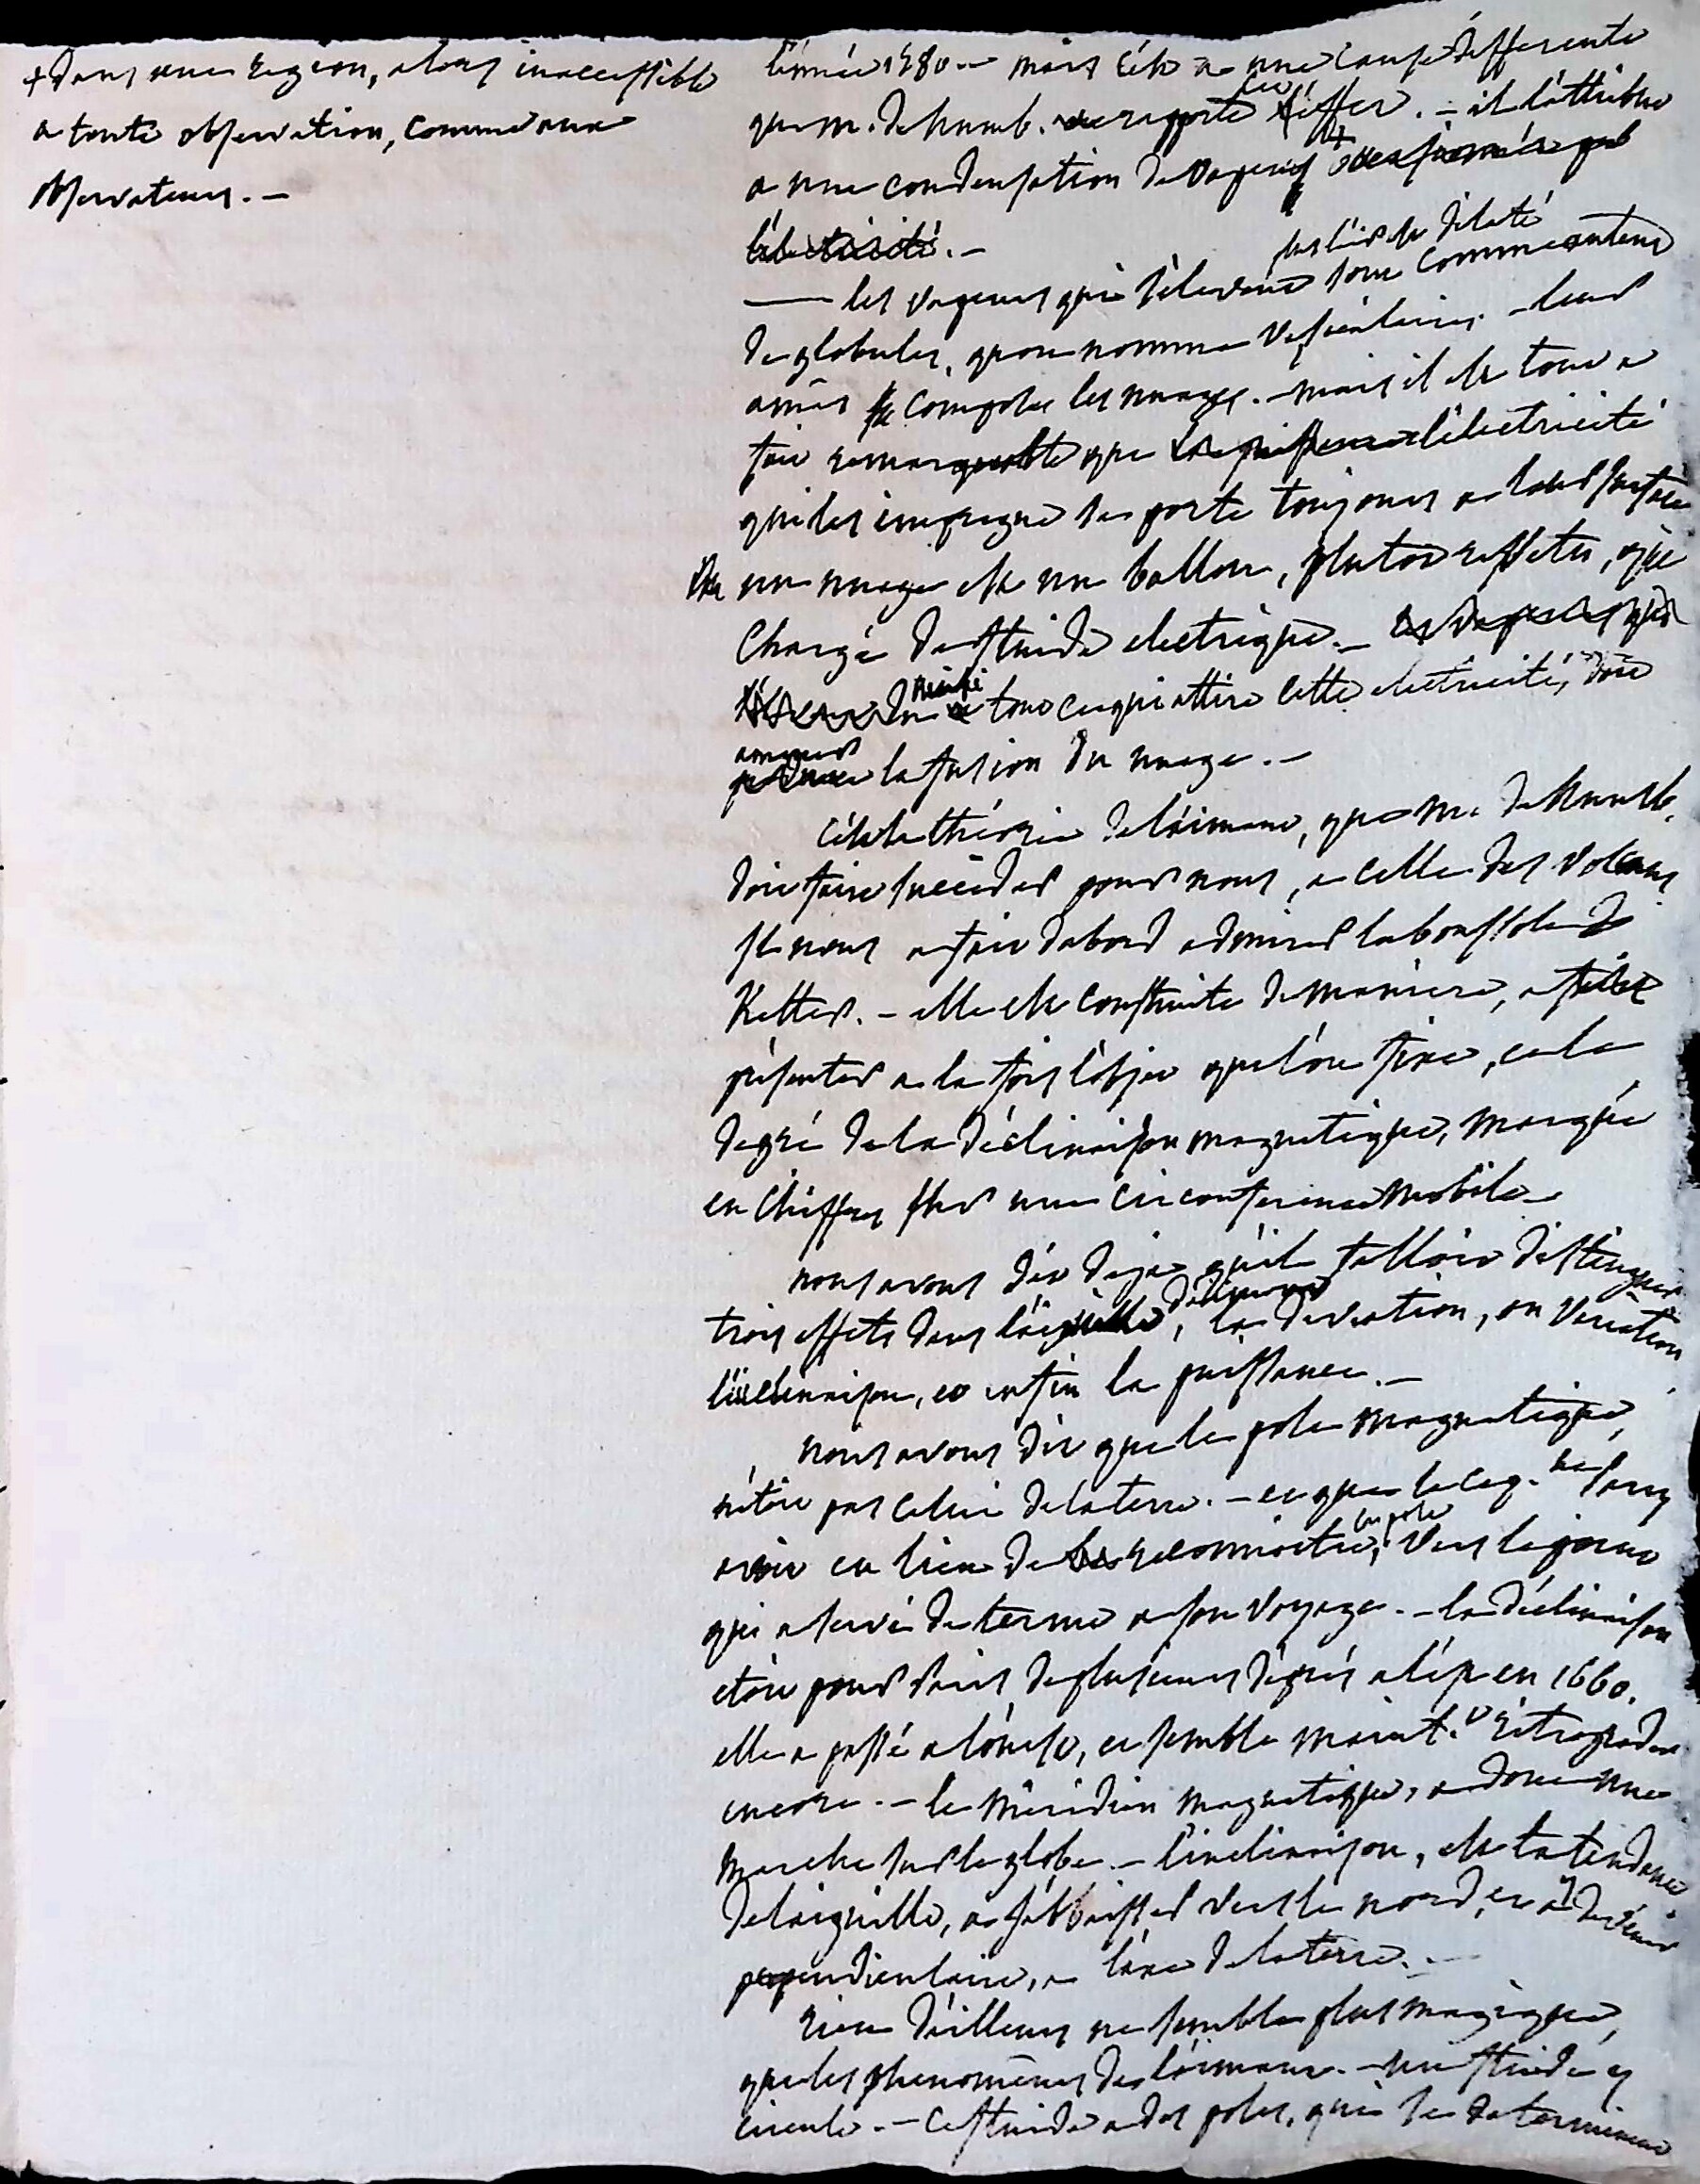 + dans une region, alors inaccessible
a toute observation, comme aux
observateurs. —
l'année 1780 — mais c'est a une cause differente
que m. de humb. rapporte cet effet. — il l'attribue
a une condensation de vapeurs +
l'électricité. —
— les vapeurs qui s'élèvent par l'air dilaté sont comme autant
de globules, qu'on nomme vésiculaires. — leur
amas compose les nuages. — mais il est tout a
fait remarquable que l'électricité
qui les impregne se porte toujours a leur surface
un nuage est un ballon, plutot revetu, que
chargé de fluide electrique. —
tout ce qui attire cette electricité, doit
amener la fusion du nuage. —
C'est la théorie de l'aimant, que M. de Humb.
doit faire succéder pour nous, a celle des volcans
Il nous a fait dabord admirer la boussole de
Katter. — elle est construite de maniere, a
présenter a la fois l'objet que l'on fixe, et le
degré de la déclinaison magnetique, marquée
en chiffres sur une circonference mobile —
nous avons dit deja qu'il falloit distinguer
trois effets dans l'aiguille, la deviation, ou variation
l'inclinaison, et enfin la puissance. —
nous avons dit que le pole magnetique,
n'étoit pas celui de la terre. — ce que le cap.ne parry
avoit eu lieu de reconnoitre, vers le point
qui a servi de terme a son voyage. — la déclinaison
etoit pour paris de plusieurs degrés a l'est en 1660.
elle a passé a l'ouest, et semble maint.t rétrograder
encore. — le méridien magnetique, a donc une
marche sur le globe. — l'inclinaison, est la tendance
de l'aiguille, a s'abbaisser vers le nord, et a devenir
perpendiculaire, a l'axe de la terre. —
rien d'ailleurs ne semble plus magique,
que les phenomènes de l'aimant. — un fluide y
circule. — ce fluide a des poles, qui se determinent